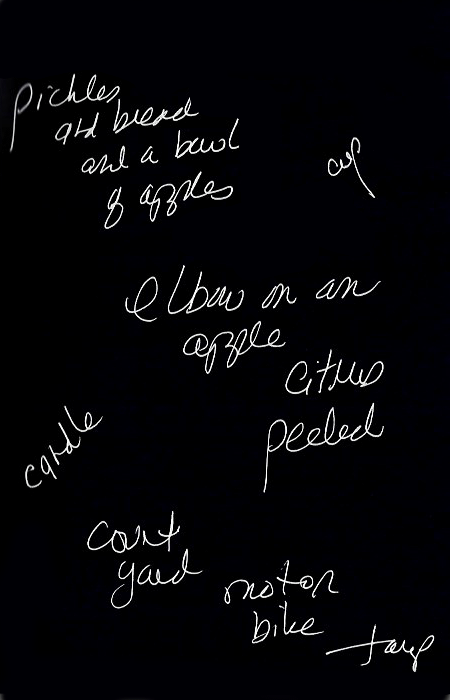 pickles
and bread
and a bowl
of apples
cup
elbow on an
apple
citrus
peeled
candle
court
yard
motor
bike
tarp